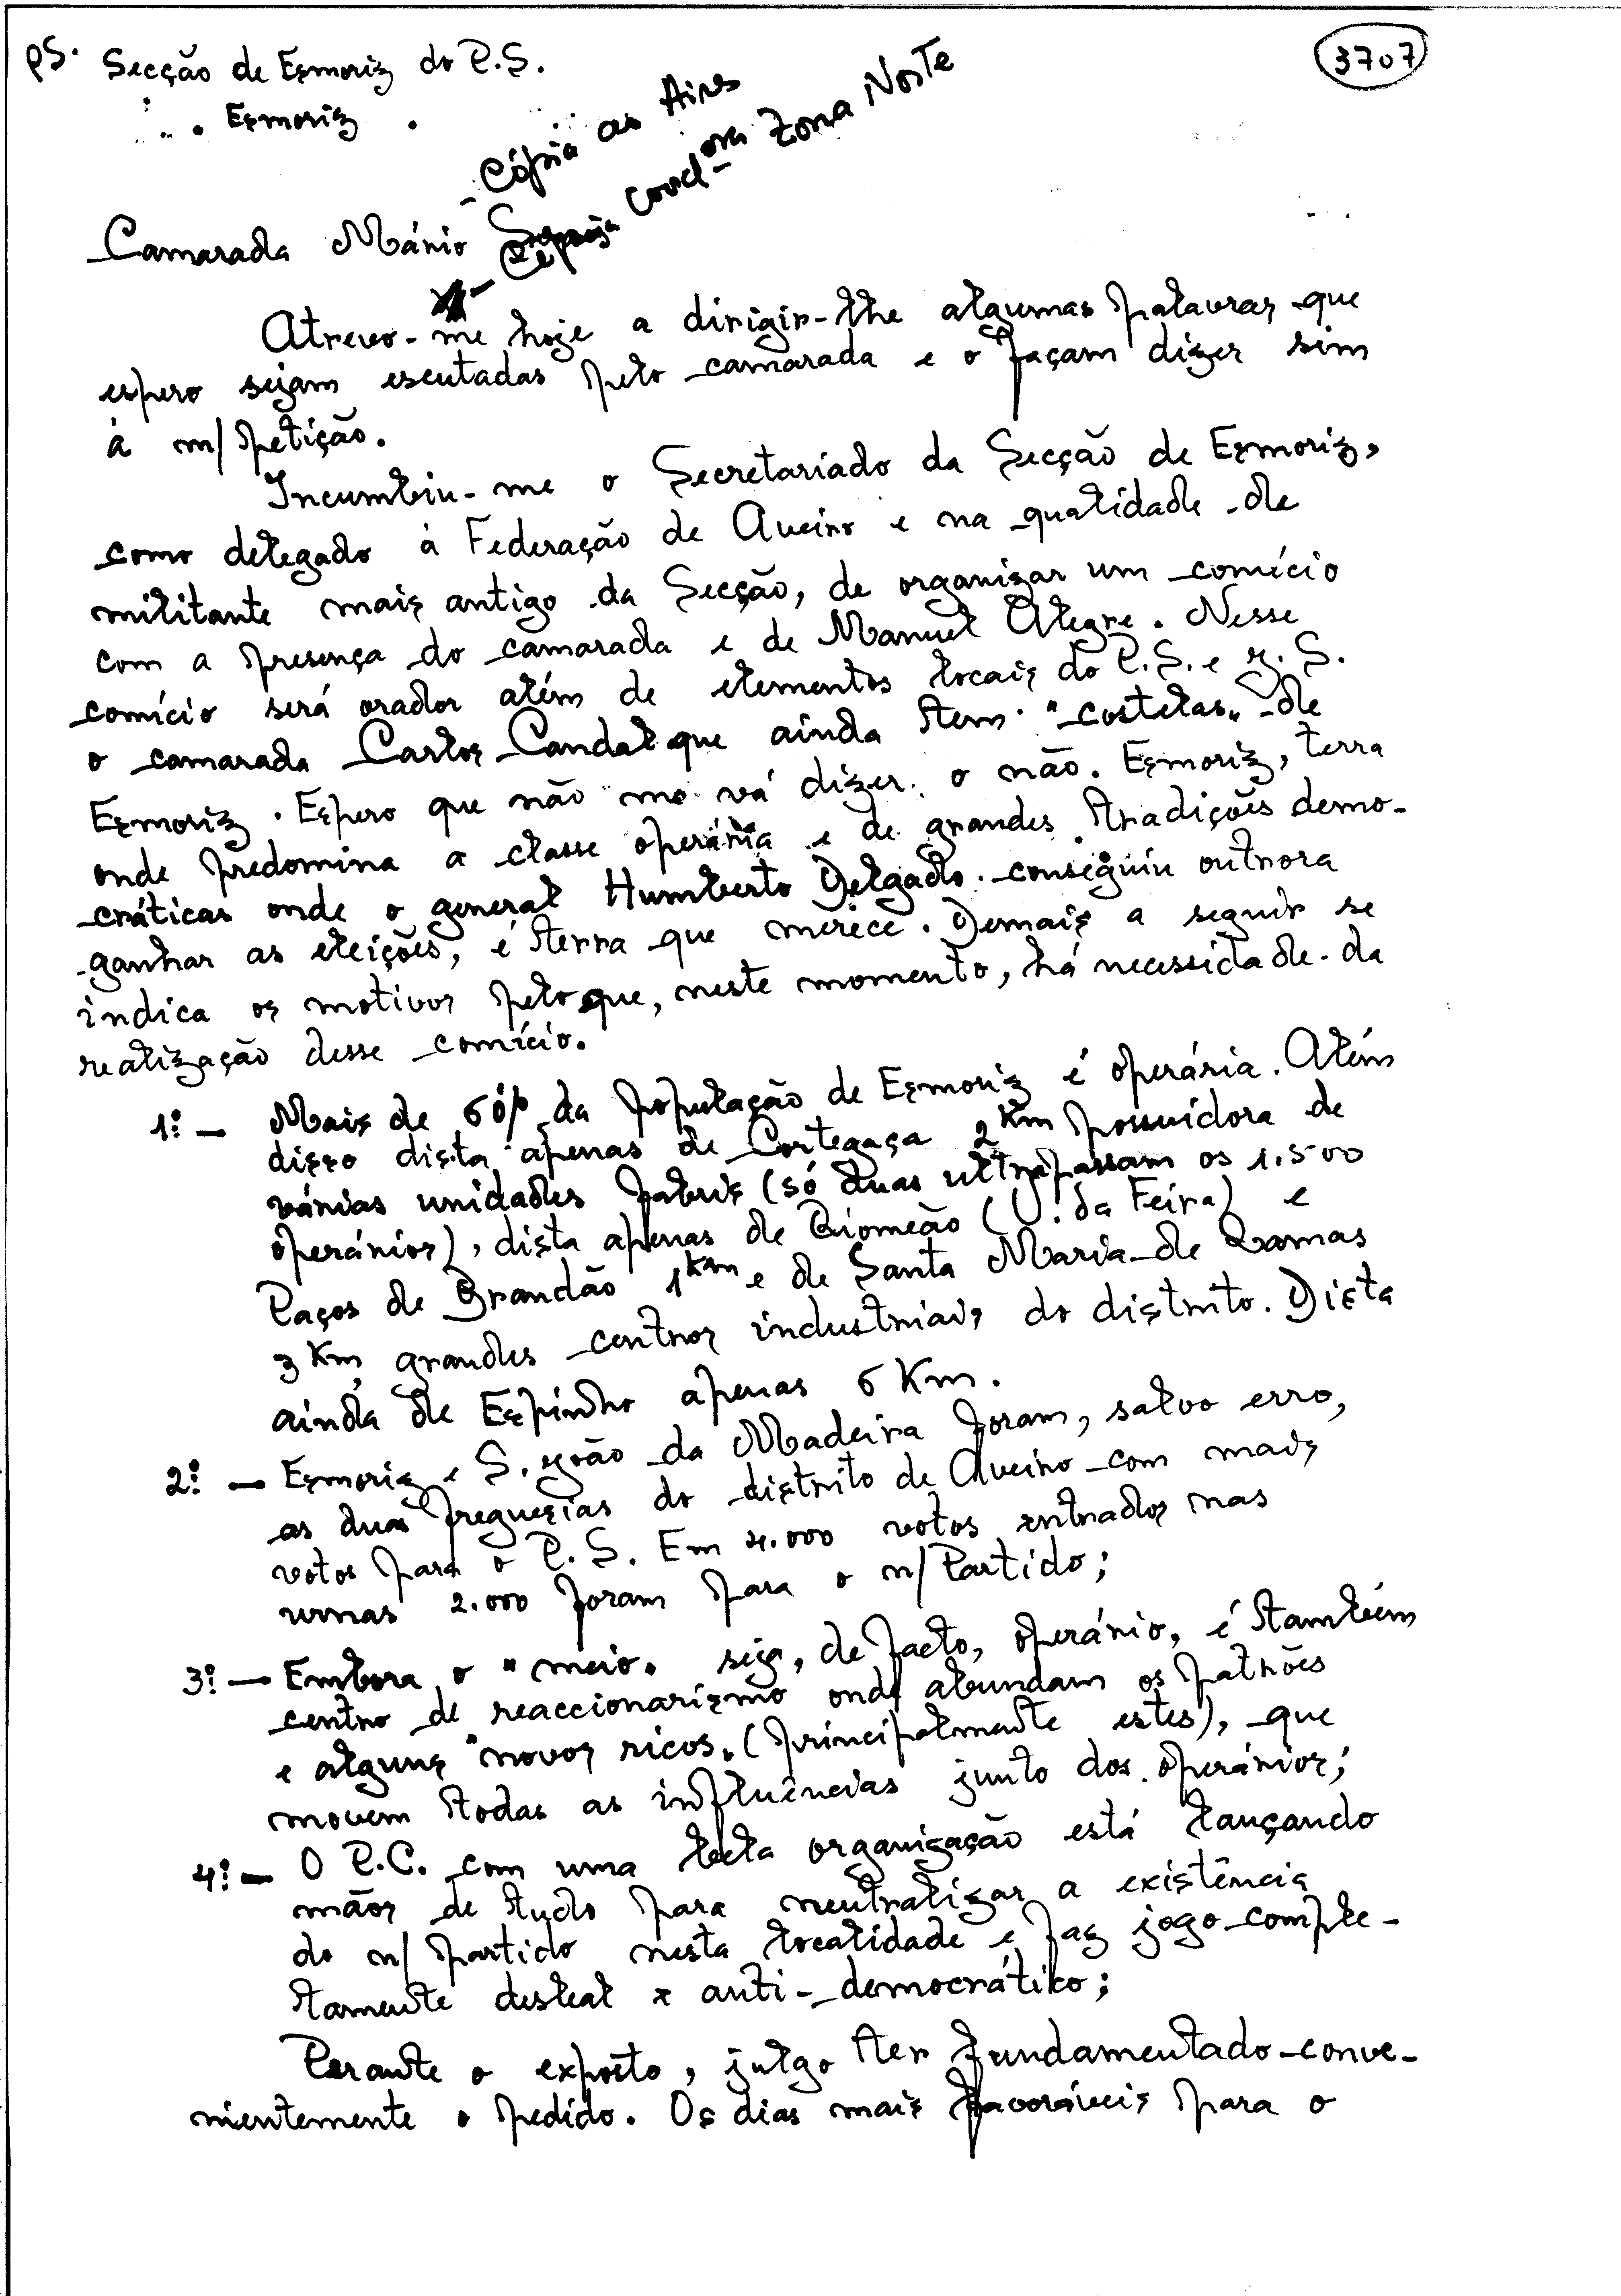 PS. Secção de Esmoriz do P.S.
3707
Esmoriz
- Cópia ao Aires
- Cópia Coord-ora Zona Norte
Camarada Mário
Atrevo-me hoje a dirigir-lhe algumas palavras que
espero sejam escutadas pelo camarada e o façam dizer sim
à m/ petição.
Incumbiu-me o Secretariado da Secção de Esmoriz,
como delegado à Federação de Aveiro e na qualidade de
militante mais antigo da Secção, de organizar um comício
com a presença do camarada e de Manuel Alegre. Nesse
comício será orador além de elementos locais do P.S. e J.S.
o camarada Carlos Candal que ainda tem "costelas" de
Esmoriz. Espero que não me vá dizer o não. Esmoriz, terra
onde predomina a classe operária e de grandes tradições demo-
cráticas onde o general Humberto Delgado conseguiu outrora
ganhar as eleições, é terra que merece. Demais a seguir se
indica os motivos pelo que, neste momento, há necessidade da
realização desse comício.
1º - Mais de 60% da população de Esmoriz é operária. Além
disso dista apenas de Cortegaça 2 Km possuidora de
várias unidades fabris (só duas ultrapassam os 1.500
operários), dista apenas de Riomeão (V. da Feira) e
Paços de Brandão 1 Km e de Santa Maria de Lamas
3 Km, grandes centros industriais do distrito. Dista
ainda de Espinho apenas 6 Km.
2º - Esmoriz e S. João da Madeira foram, salvo erro,
as duas freguesias do distrito de Aveiro com mais
votos para o P.S. Em 4.000 votos entrados nas
urnas 2.000 foram para o n/ Partido;
3º - Embora o "meio" seja, de facto, operário, é também
centro de reaccionarismo onde abundam os patrões
e alguns "novos ricos" (principalmente estes), que
movem todas as influências junto dos operários;
4º - O P.C. com uma bela organização está lançando
mãos de tudo para neutralizar a existência
do n/ partido nesta localidade e faz jogo comple-
tamente desleal e anti-democrático;
Perante o exposto, julgo ter fundamentado conve-
nientemente o pedido. Os dias mais favoráveis para o